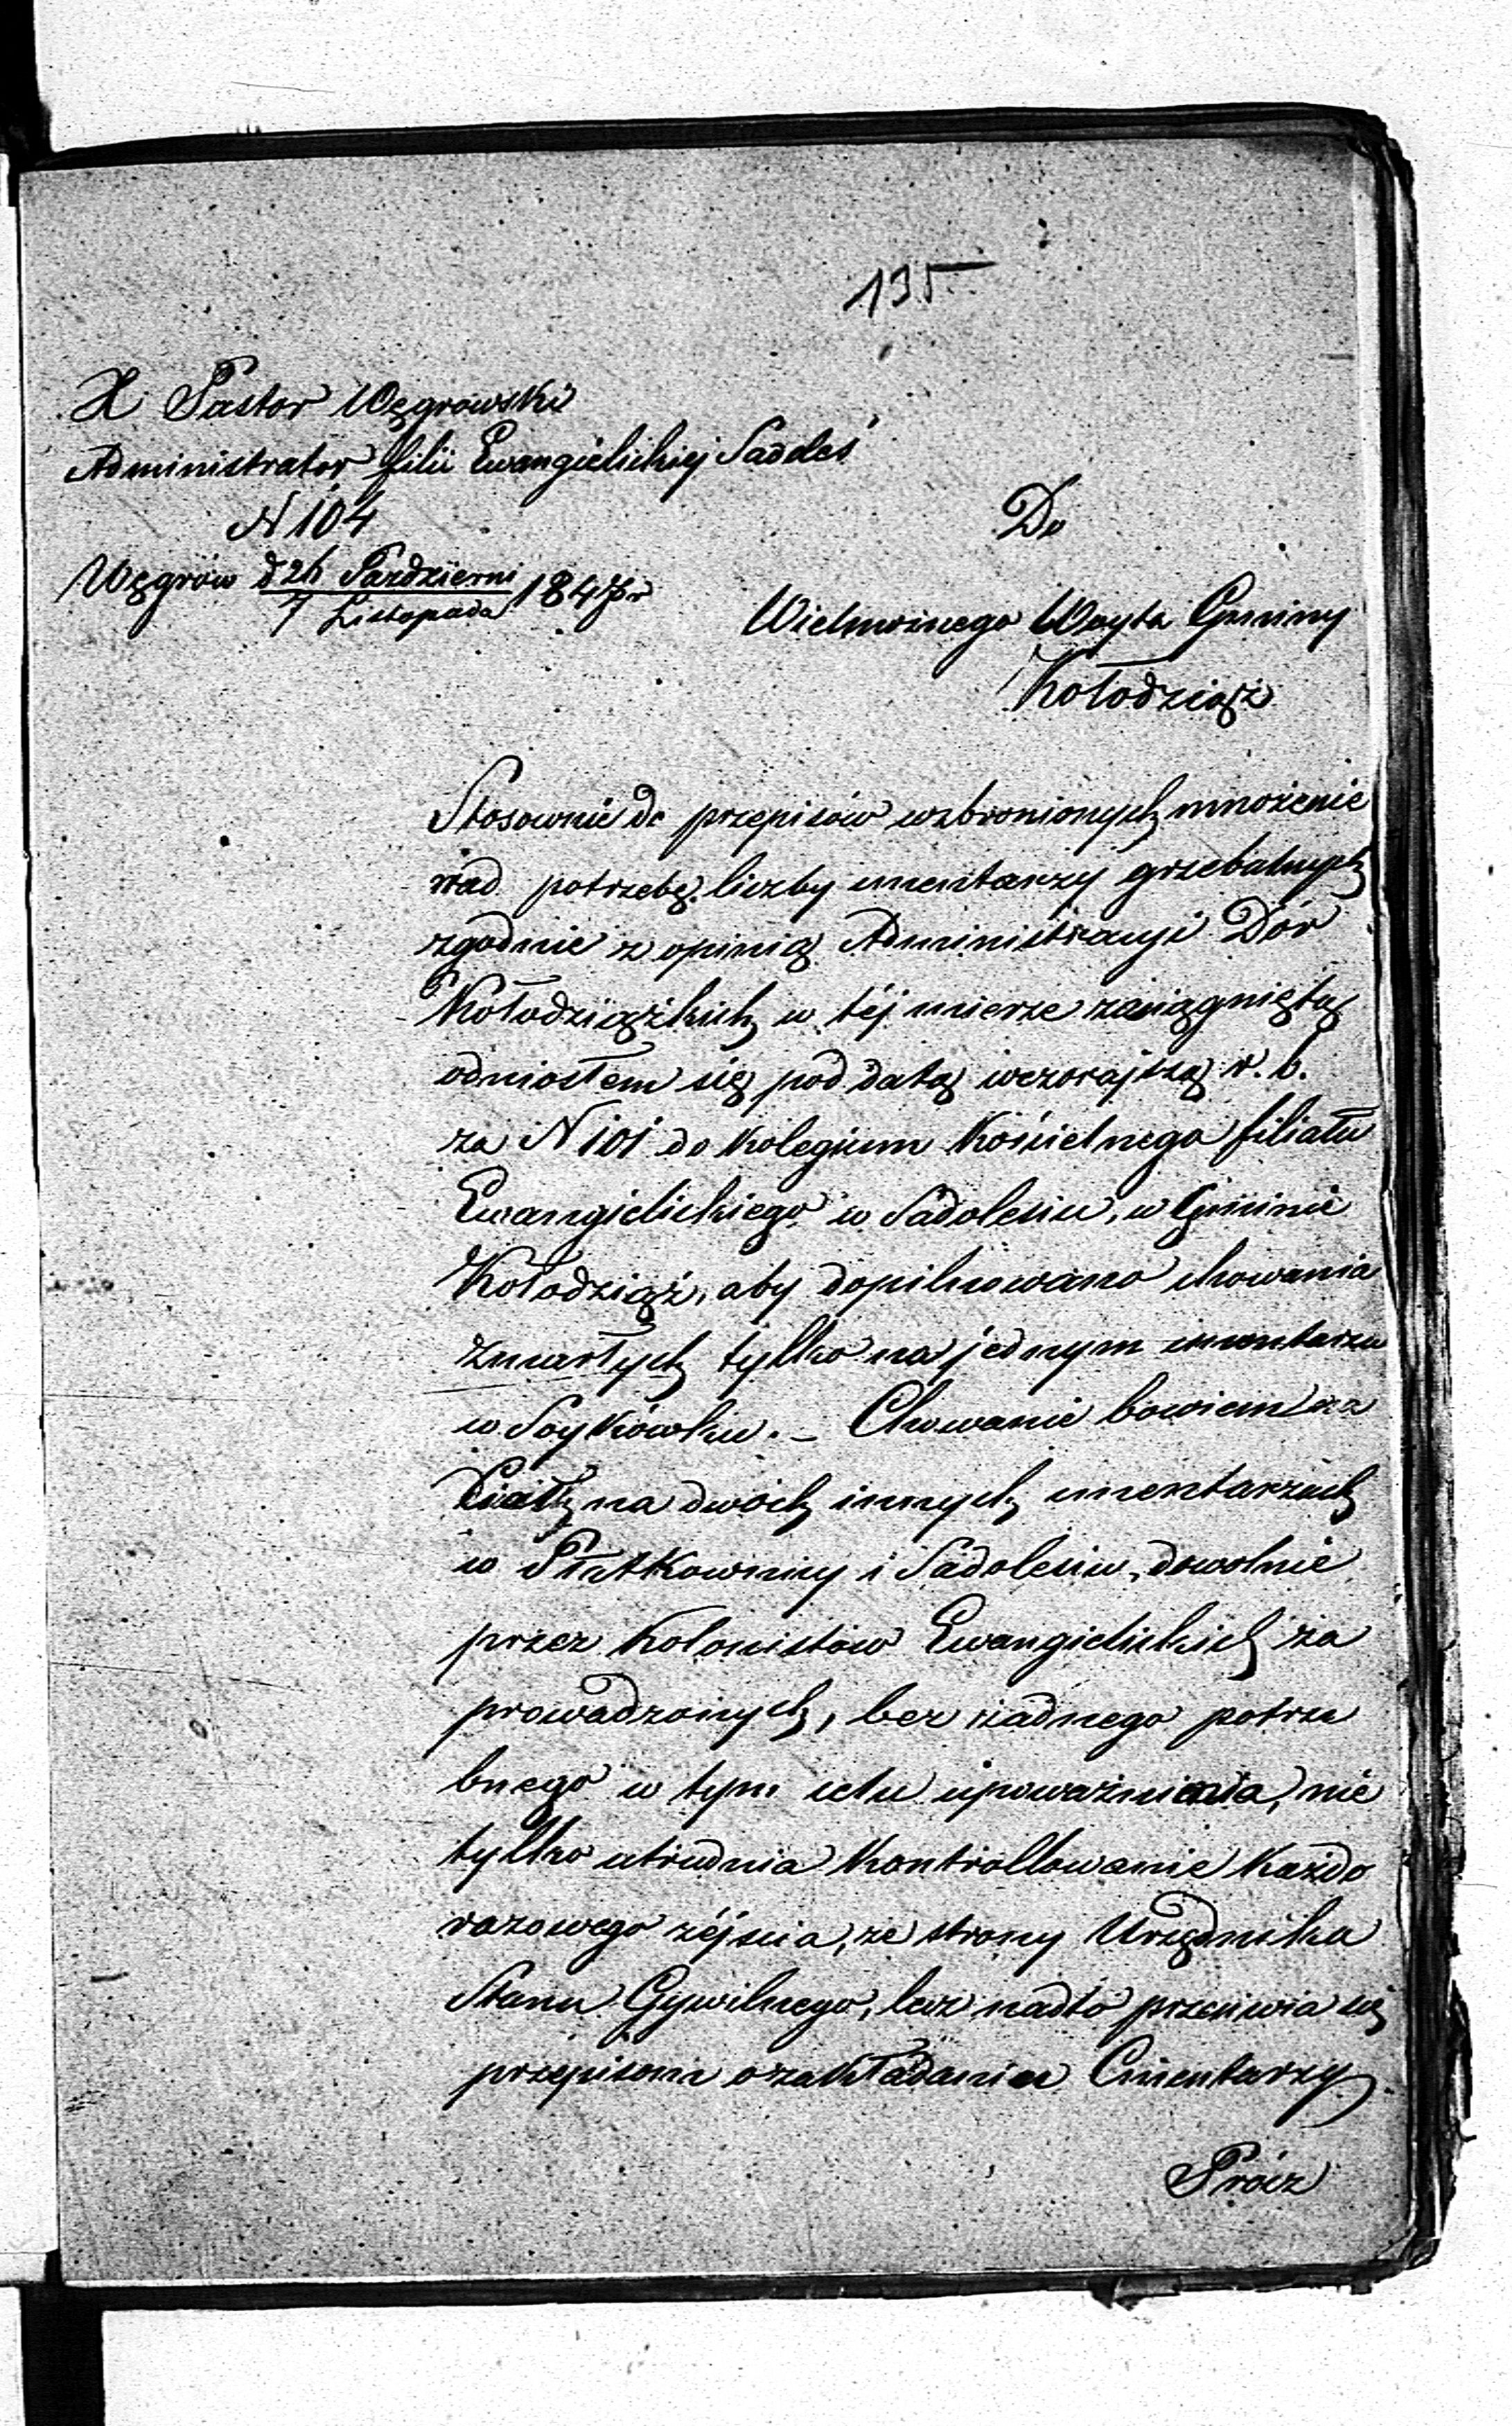 135
X Pastor Węgrowski
Administrator filii Ewangielickiej Sadoleś
N 104
Węgrów d 26 Pazdzierni 1847 r
7 Listopada
Do
Wielmożnego Woyta Gminy
Kołodziąż
Stosownie do przepisów wzbronionych mnożenie
nad potrzebę liczby cmentarzy grzebalnych
zgodnie z opinią Administracyi Dóbr
Kołodziążkich w téj mierze zasiągniętą
odniosłem się pod datą wczorajszą r. b.
za N 101 do Kolegium Kościelnego filiału
Ewangielickiego w Sadolesiu, w Gminie
Kołodziąż, aby dopilnowano chowania
zmarłych tylko na jednym cmentarzu
w Soykówku. – Chowanie bowiem
Ciał na dwóch innych cmentarzach
w Płatkownicy i Sadolesiu, dowolnie
przez Kolonistów Ewangielickich za
prowadzonych, bez żadnego potrze
bnego w tym celu upoważnienia, nie
tylko utrudnia Kontrollowanie Każdo
razowego zéjscia, ze strony Urzędnika
Stanu Cywilnego, lecz nadto przeciwia się
przepisom o zakładaniu Cmentarzy.
Prócz